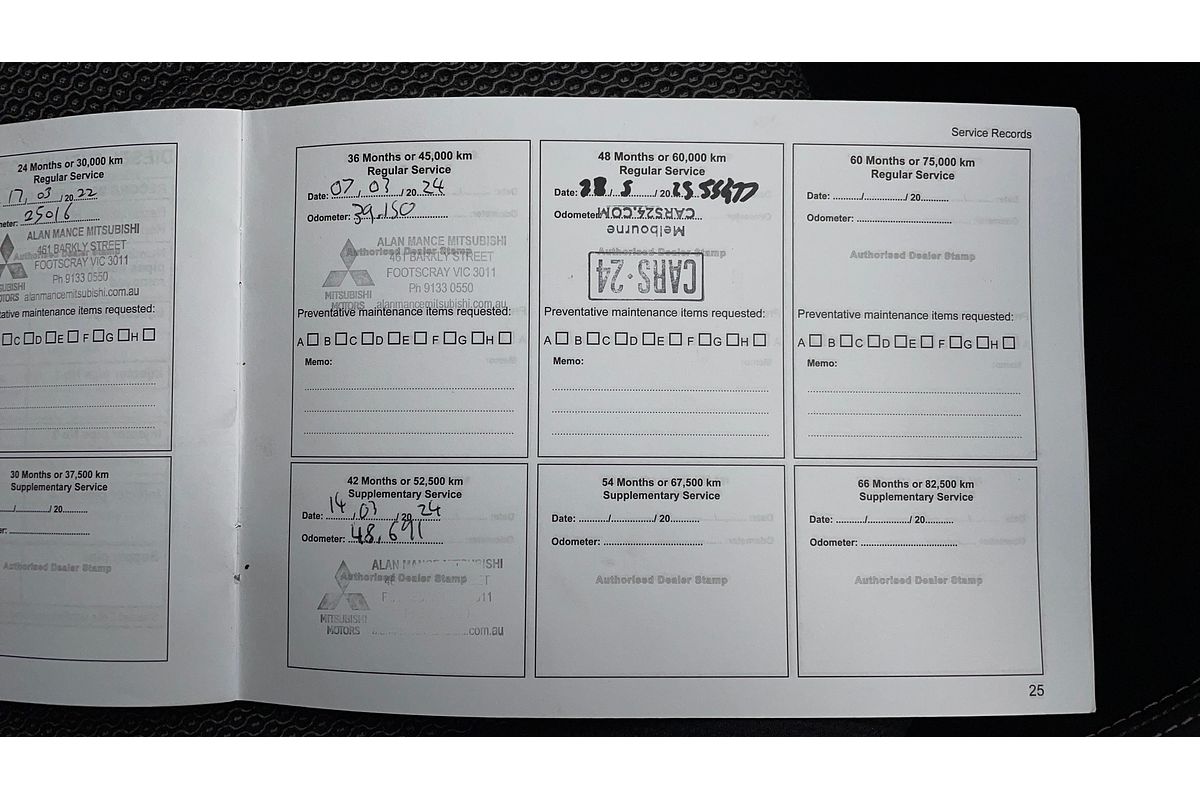 Service Records
24 Months or 30,000 km
Regular Service
17, 03 /20 22
meter: 25016
ALAN MANCE MITSUBISHI
461 BARKLY STREET
Authorised Dealer Stamp
FOOTSCRAY VIC 3011
Ph 9133 0550
alanmancemitsubishi.com.au
ative maintenance items requested:
C D E F G H
30 Months or 37,500 km
Supplementary Service
/ / 20
er:
Authorised Dealer Stamp
36 Months or 45,000 km
Regular Service
Date: 07, 03 /20 24
Odometer: 39,150
ALAN MANCE MITSUBISHI
Authorised Dealer Stamp
461 BARKLY STREET
FOOTSCRAY VIC 3011
Ph 9133 0550
MITSUBISHI
MOTORS alanmancemitsubishi.com.au
Preventative maintenance items requested:
A B C D E F G H
Memo:
42 Months or 52,500 km
Supplementary Service
Date: 14 / 03 / 20 24
Odometer: 48,691
ALAN
ISHI
Authorised Dealer Stamp
MITSUBISHI
MOTORS
.com.au
48 Months or 60,000 km
Regular Service
Date: 28 / 5 / 20 25 55477
Odometer:
CARS24.COM
Melbourne
Authorised Dealer Stamp
CARS·24
Preventative maintenance items requested:
A B C D E F G H
Memo:
54 Months or 67,500 km
Supplementary Service
Date: / / 20
Odometer:
Authorised Dealer Stamp
60 Months or 75,000 km
Regular Service
Date: / / 20
Odometer:
Authorised Dealer Stamp
Preventative maintenance items requested:
A B C D E F G H
Memo:
66 Months or 82,500 km
Supplementary Service
Date: / / 20
Odometer:
Authorised Dealer Stamp
25